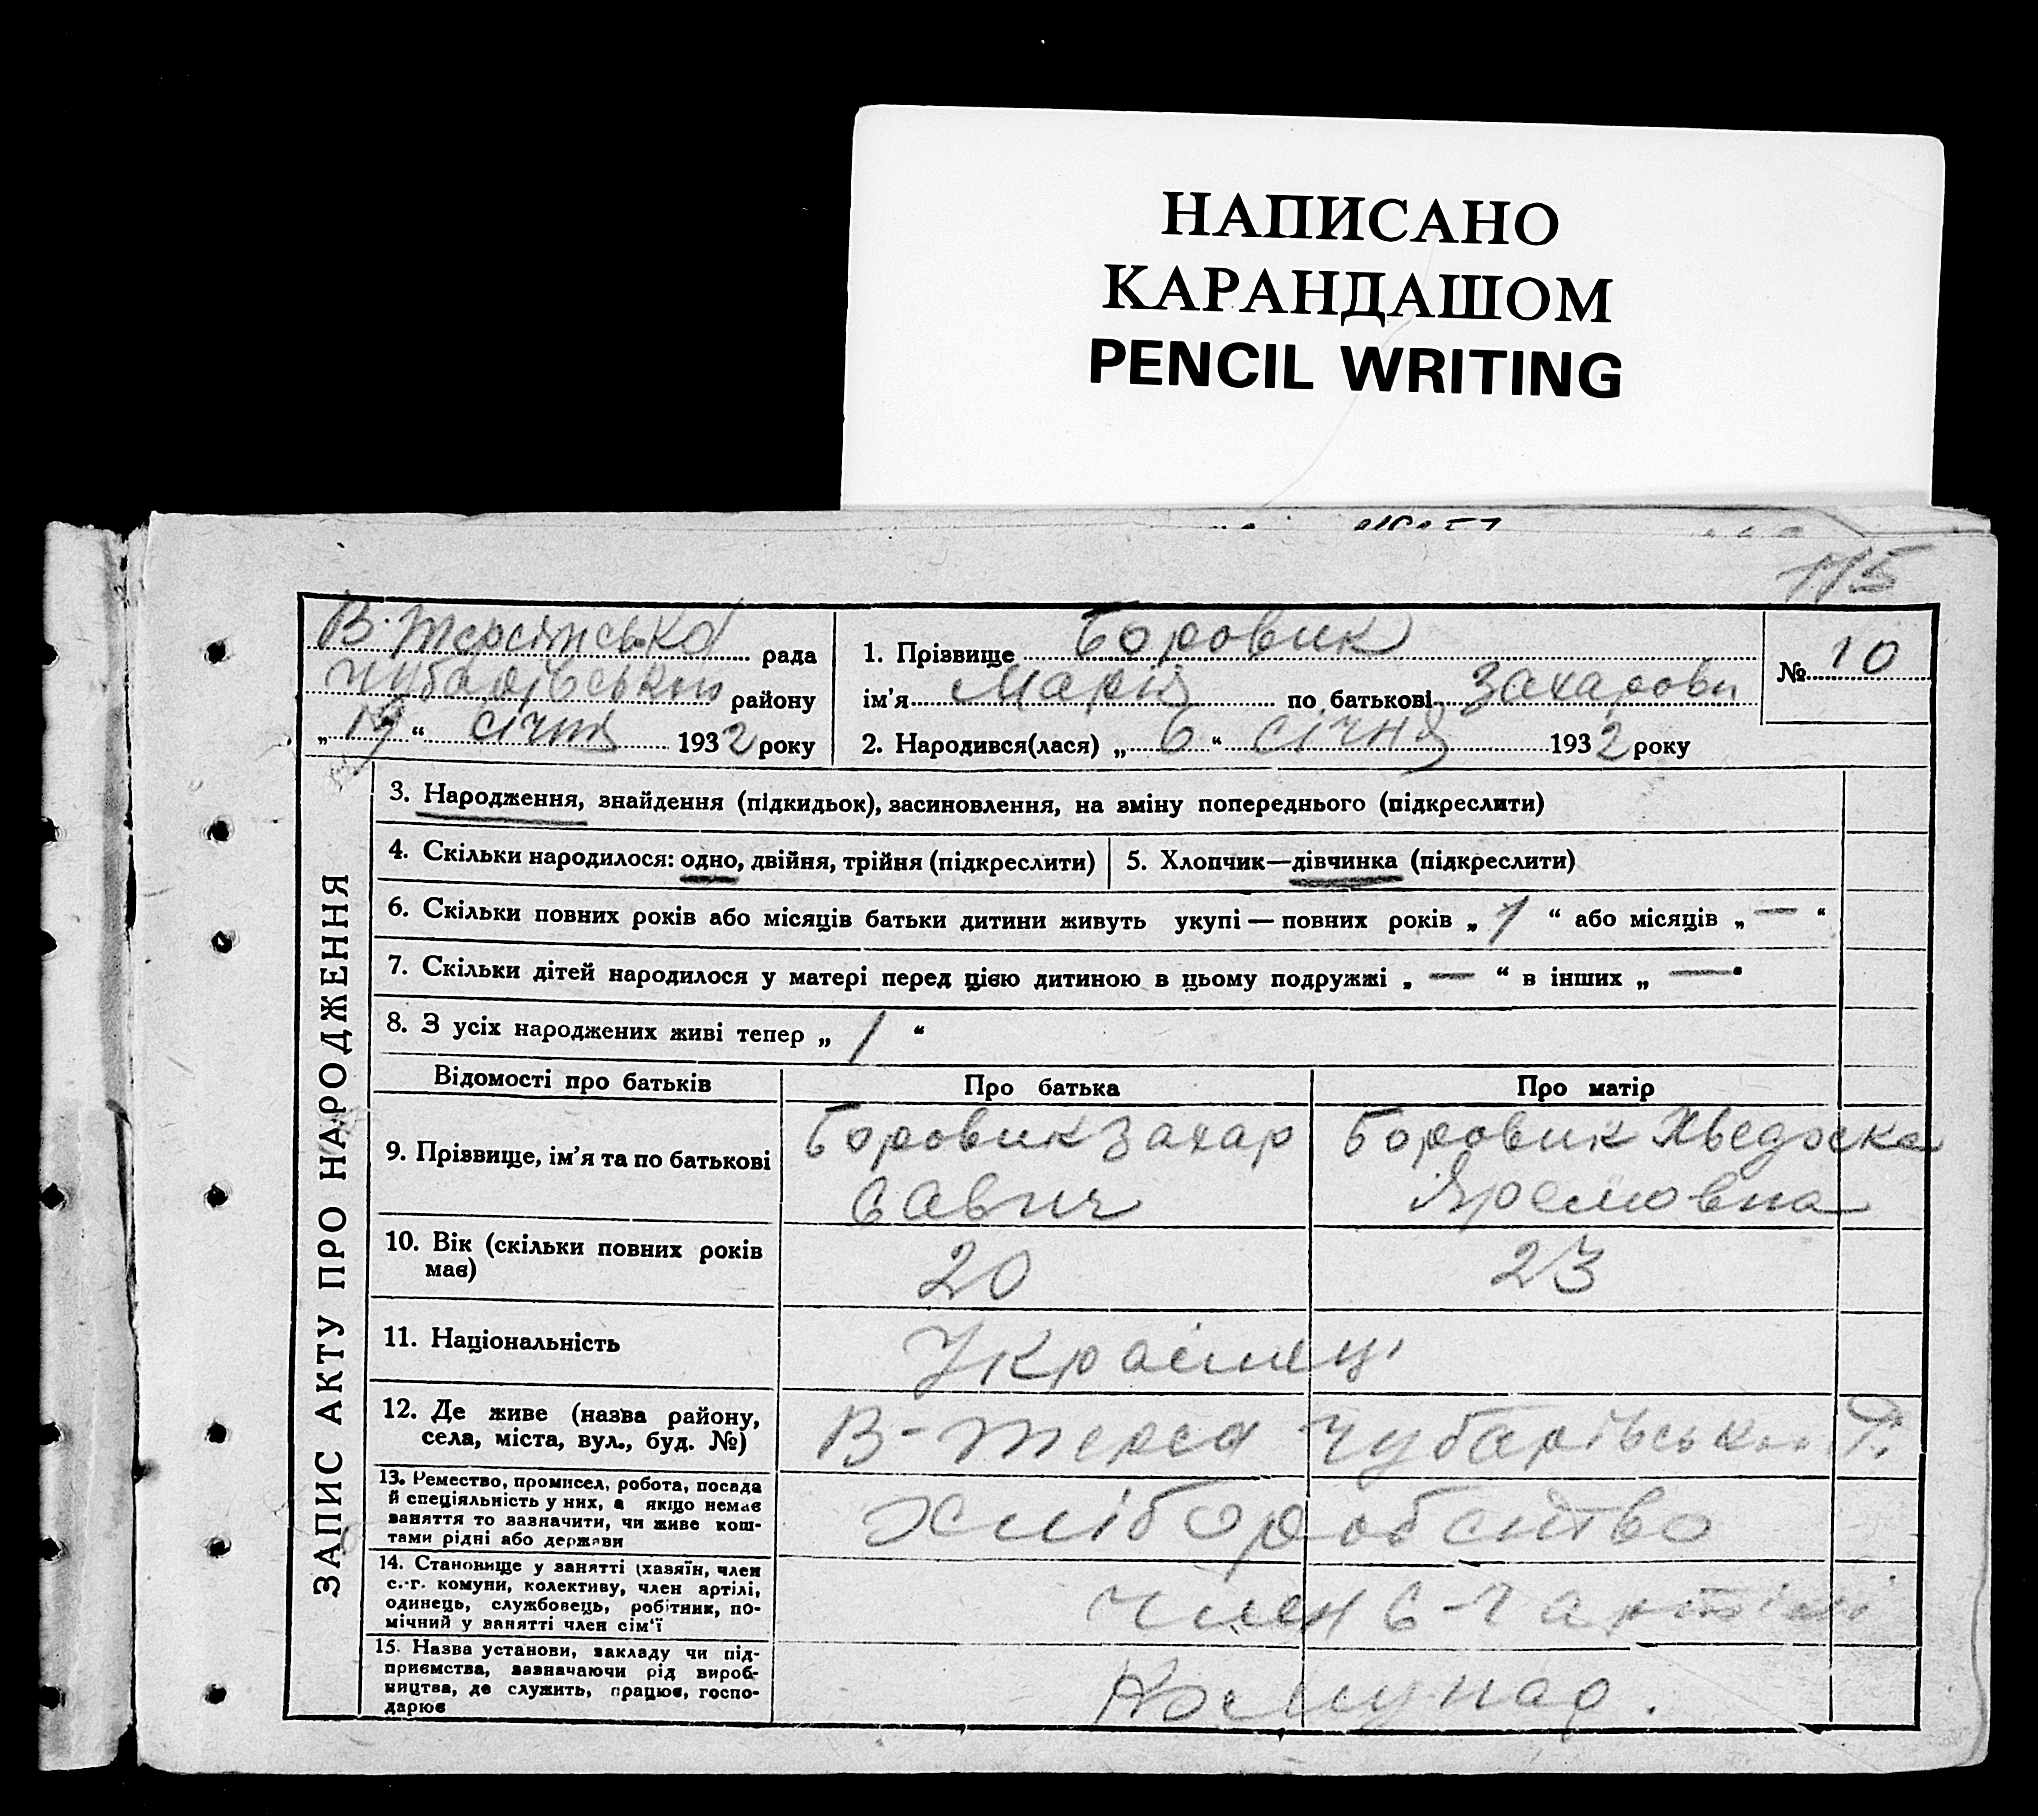 НАПИСАНО
КАРАНДАШОМ
PENCIL WRITING
115
В. Терсянська рада
Чубарівського району
„19“ січня 1932 року
1. Прізвище Боровик
ім'я Марія по батькові Захарови
2. Народився(лася) „6“ січня 1932 року
№ 10
ЗАПИС АКТУ ПРО НАРОДЖЕННЯ
3. Народження, знайдення (підкидьок), засиновлення, на зміну попереднього (підкреслити)
4. Скільки народилося: одно, двійня, трійня (підкреслити)
5. Хлопчик—дівчинка (підкреслити)
6. Скільки повних років або місяців батьки дитини живуть укупі — повних років „1“ або місяців „—“
7. Скільки дітей народилося у матері перед цією дитиною в цьому подружжі „—“ в інших „—“
8. З усіх народжених живі тепер „1“
Відомості про батьків
Про батька
Про матір
9. Прізвище, ім'я та по батькові
Боровик Захар
Савич
Боровик Хведоска
Яремовна
10. Вік (скільки повних років
має)
20
23
11. Національність
Українці
12. Де живе (назва району,
села, міста, вул., буд. №)
В-Терса Чубарівського Р.
13. Ремество, промисел, робота, посада
й спеціяльність у них, а якщо немає
заняття то зазначити, чи живе кош-
тами рідні або держави
Хліборобство
14. Становище у занятті (хазяїн, член
с.-г. комуни, колективу, член артілі,
одинець, службовець, робітник, по-
мічний у занятті член сім'ї
Член С-Г артілі
15. Назва установи, закладу чи під-
приємства, зазначаючи рід вироб-
ництва, де служить, працює, госпо-
дарює
Комунар.